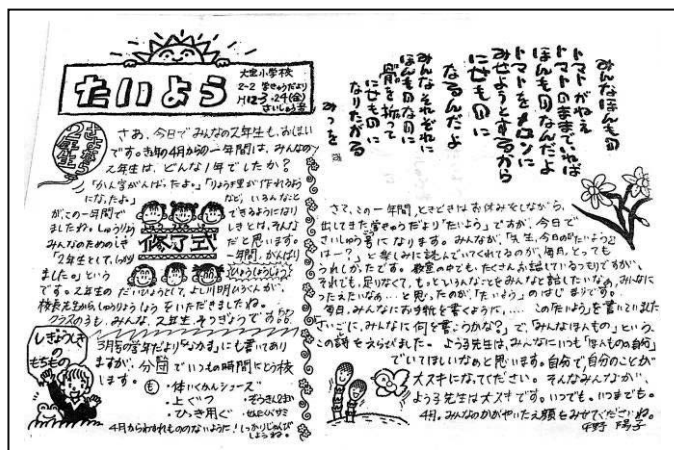 たいよう
大宝小学校
2-2 学きゅうだより
H12.3.24(金)
さいしゅう号
さよなら2年生
さあ、今日でみんなの2年生も、おしまい
です。去年の4月からの一年間は、みんなの
2年生は、どんな1年でしたか?
「かん字がんばったよ。」「りょう理が作れるよう
になったよ。」など、いろんなこと
が、この一年間でできるようになり
ましたね。しゅうりょうしきとは、そんな
みんなのためのしきだと思います。
「2年生として、しっかり一年間、がんばり
ました。」というひょうしょうしき
です。2年生のだいひょうとして、よし川明ひろくんが、
校長先生から、しゅうりょうしょうをいただきましたね。
クラスのうち、みんな、2年生そつぎょうです!
修了式
しぎょうしきのもちもの
3月号の学年だより「なかま」にも書いてあり
ますが、分団でいつもの時間にとう校
します。
も
・体いくかんシューズ
・ぞうきん2まい
・上ぐつ
・ひっき用ぐ
4月からわすれもののないように!しっかりじゅんび
しようね。
みんなほんもの
トマトがねえ
トマトのままでいれば
ほんものなんだよ
トマトをメロンに
みせようとするから
にせものに
なるんだよ
みんなそれぞれに
ほんものなのに
骨を折って
にせものに
なりたがる
みつを
さて、この一年間、ときどきはお休みをしながら、
出してきた学きゅうだより「たいよう」ですが、今日で
さいしゅう号になります。みんなが、「先生、今日の『たいよう』
は―?」と楽しみに読んでいてくれてるのが、毎日、とっても
うれしかったです。教室の中でも、たくさんお話しているつもりですが、
それでも、足りなくて、もっといろんなことをみんなと話したいな、みんなに
つたえたいなあ…と思ったのが、「たいよう」のはじまりです。
毎日、みんなにお手紙を書くように、…この「たいよう」を書いていました。
さいごに、みんなに何を書こうかな?」で、「みんなほんもの」という、
この詩をえらびました。よう子先生は、みんなに、いつも「ほんものの自分」
でいてほしいなあと思います。自分で、自分のことが
大スキになってください。そんなみんなが、
よう子先生は大スキです。いつでも。いつまでも。
4月。みんなのかがやいたえ顔をみせてくださいね。
陽子